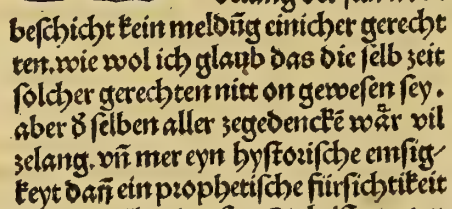 beſchicht kein meldūg einicher gerecht
ten. wie wol ich glaub das die ſelb zeit
ſolcher gerechten nitt on geweſen ſey.
aber ð ſelben aller zegedenckē wår vil
zelang. vñ mer eyn hyſtoriſche emſig⸗
keyt dañ ein prophetiſche fürſichtikeit